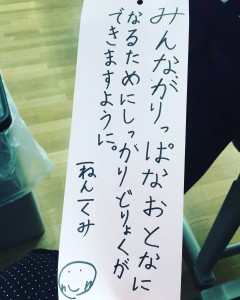 みんながりっぱなおとなに
なるためにしっかりどりょくが
できますように。
一ねん一くみ